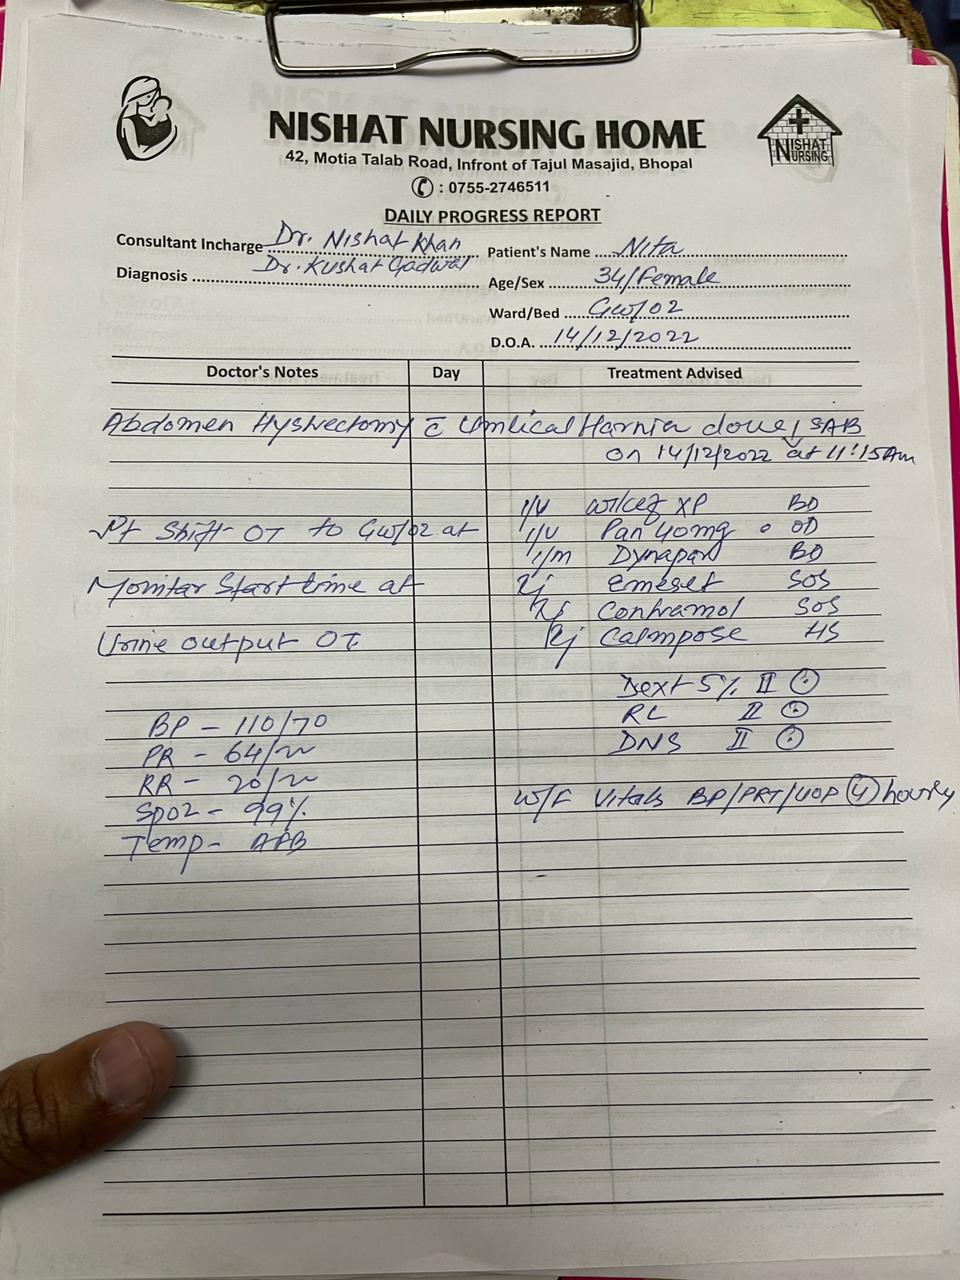 NISHAT NURSING HOME
42, Motia Talab Road, Infront of Tajul Masajid, Bhopal
: 0755-2746511
NISHAT
NURSING
DAILY PROGRESS REPORT
Consultant Incharge Dr. Nishat Khan
Dr. Kushal Gadwal
Patient's Name Nita
Diagnosis
Age/Sex 34/Female
Ward/Bed GW/02
D.O.A. 14/12/2022
Doctor's Notes Day Treatment Advised
Abdomen Hystrectomy c̄ Umlical Harnia done, SAB
on 14/12/2022 at 11:15 Am
I/V XP BD
Pt Shift OT to GW/02 at I/V Pan 40mg OD
I/m Dynapar BD
Monitar Start time at Inj Emeset SOS
Inj Contramol SOS
Urine output OT Inj Calmpose HS
Dext 5% II
BP - 110/70 RL II
PR - 64/m DNS II
RR - 20/m
SpO2 - 99% W/F Vitals BP/PRT/UOP 4 hourly
Temp - AFB